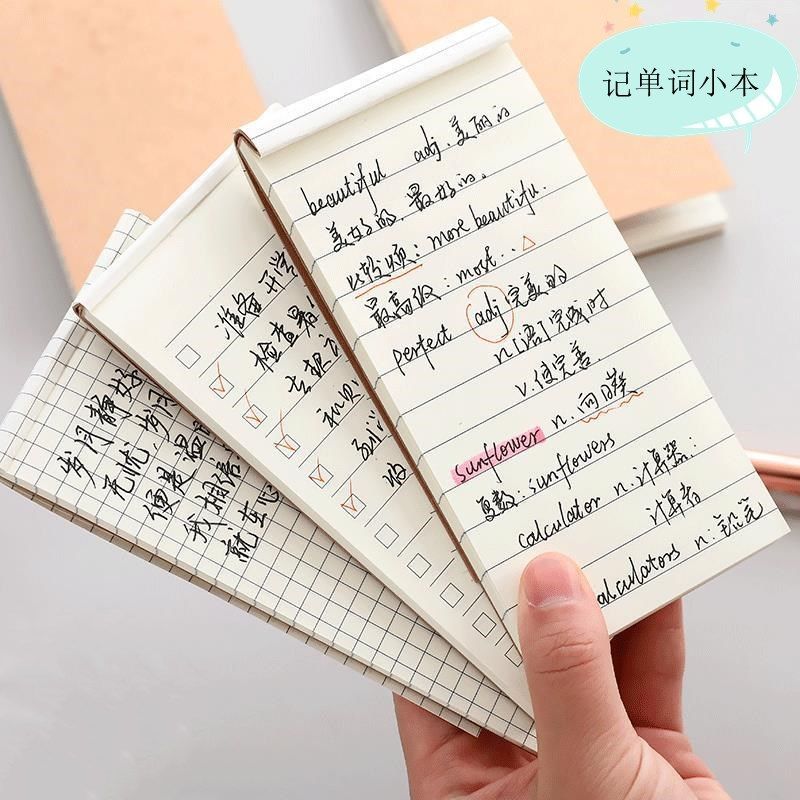 记单词小本
beautiful adj. 美丽的
美好的. 最好的.
比较级: more beautiful.
最高级: most..
perfect adj 完美的
n.(语)完成时
v.使完善.
sunflower n.向日葵
复数: sunflowers
calculator n.计算器;
计算者
alculators n:
准备开学
检查暑
去报
岁月静好
无忧 岁月
便是温
我相信
就在心